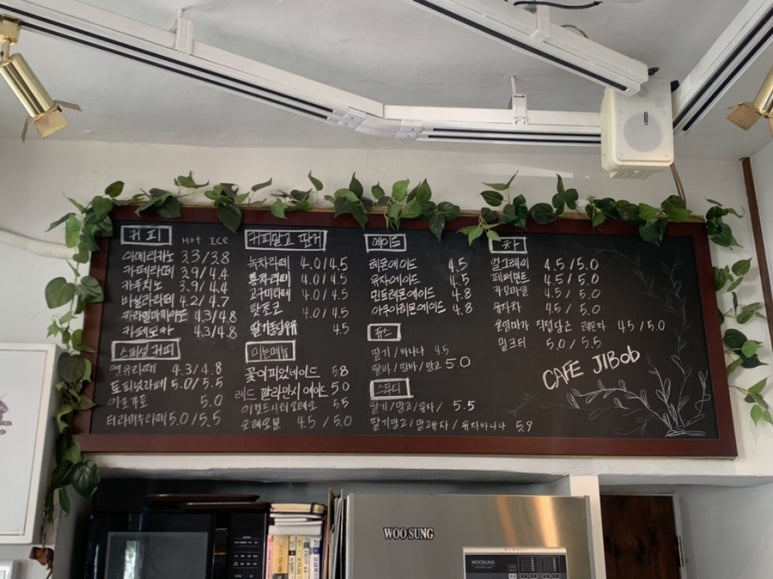 커피 HOT ICE
아메리카노 3.3/3.8
카페라떼 3.9/4.4
카푸치노 3.9/4.4
바닐라라떼 4.2/4.7
카라멜마끼아또 4.3/4.8
카페모카 4.3/4.8
스페셜 커피
연유라떼 4.3/4.8
5.0/5.5
아포가토 5.0
티라미수라떼 5.0/5.5
커피말고 딴거
녹차라떼 4.0/4.5
홍차라떼 4.0/4.5
고구마라떼 4.0/4.5
핫초코 4.0/4.5
딸기퐁당우유 4.5
미는메뉴
꽃이피었네이드 5.8
레드 깔라만시 에이드 5.0
5.5
오레오 4.5/5.0
에이드
레몬에이드 4.5
유자에이드 4.5
민트레몬에이드 4.8
아쿠아레몬에이드 4.8
쥬스
딸기/바나나 4.5
딸바/망바/망고 5.0
스무디
딸기/망고/유자/ 5.5
딸기망고/망고유자/유자바나나 5.9
차
얼그레이 4.5/5.0
페퍼민트 4.5/5.0
카모마일 4.5/5.0
유자차 4.5/5.0
직접담근 레몬차 4.5/5.0
밀크티 5.0/5.5
CAFE JIBob
WOOSUNG
WOOSUNG